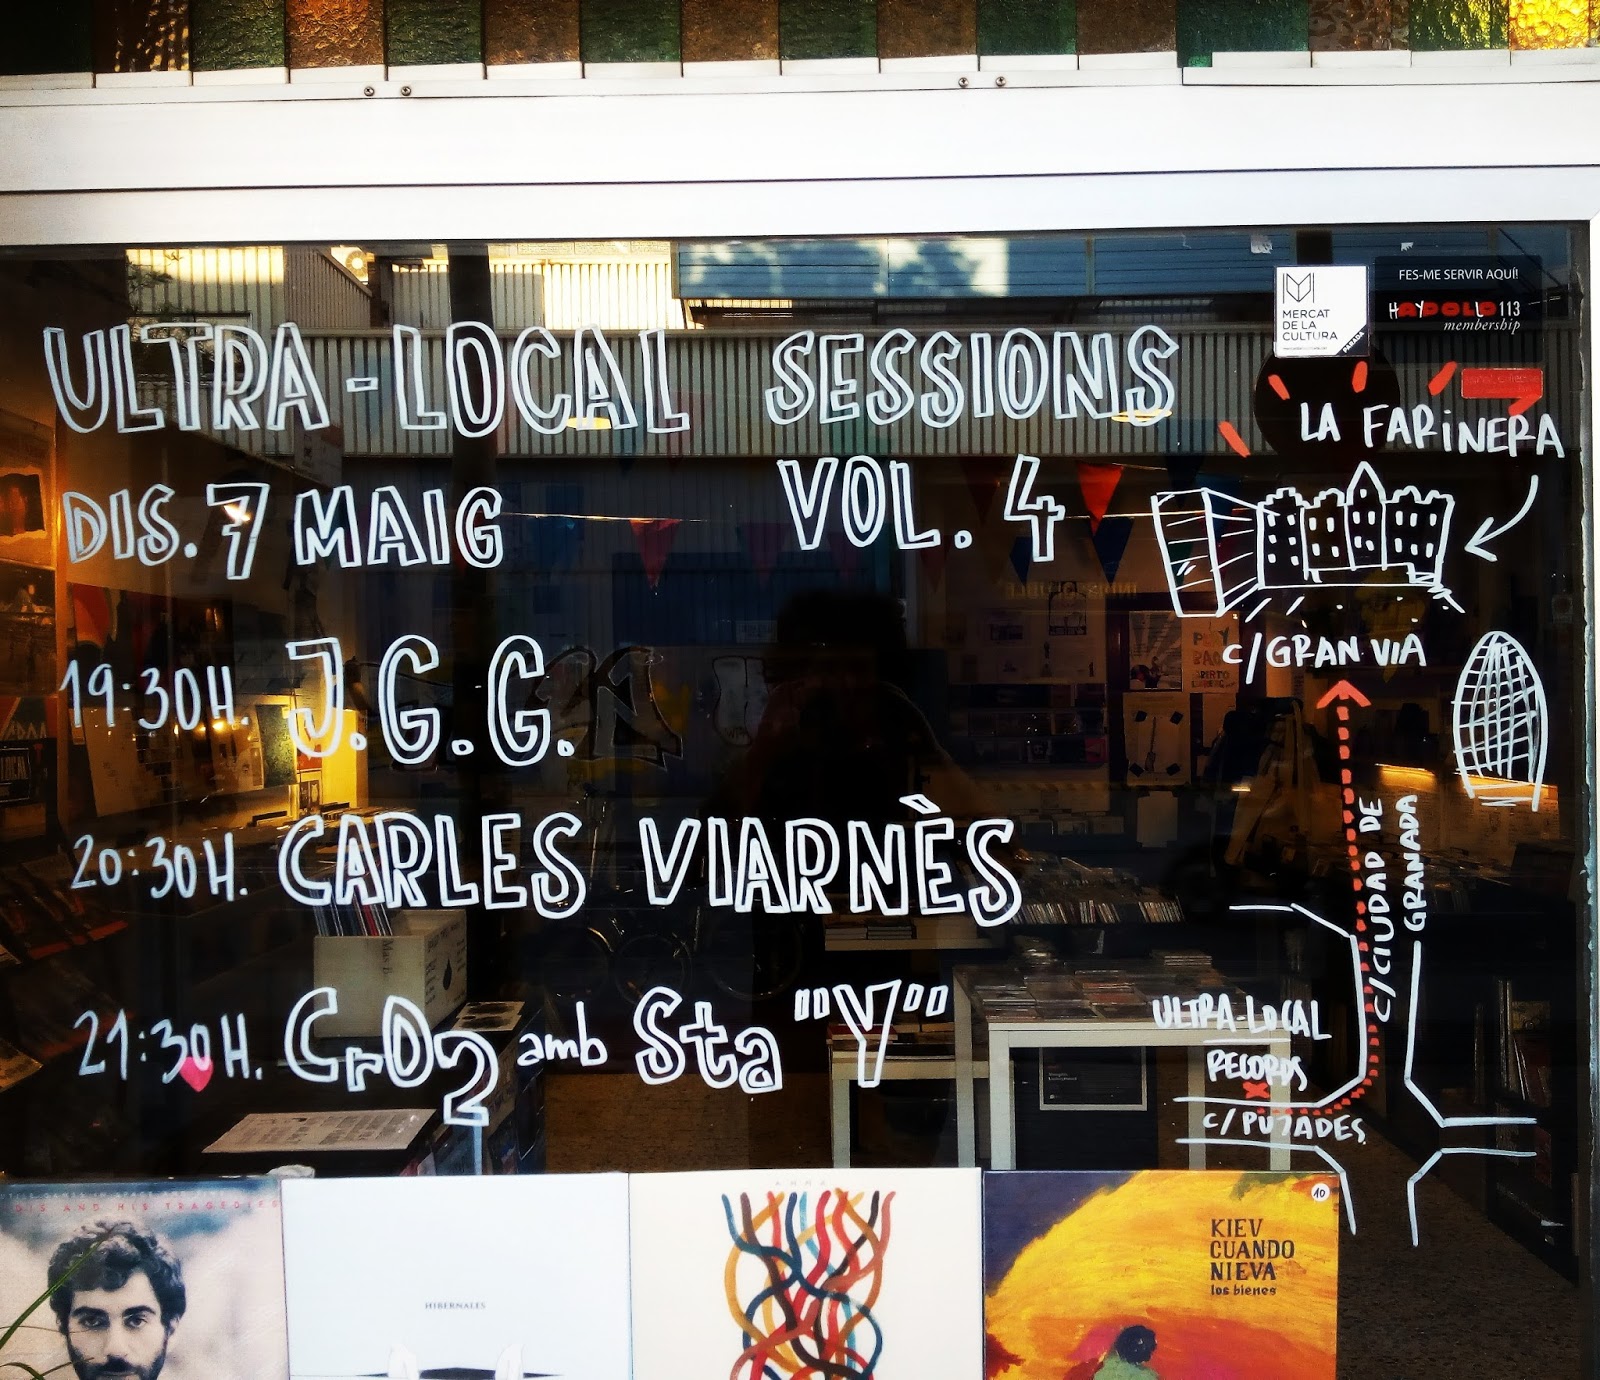 FES-ME SERVIR AQUÍ!
MERCAT
DE LA
CULTURA
PARADA
HAYPOLLO 113
membership
ULTRA-LOCAL SESSIONS
VOL. 4
DIS. 7 MAIG
19:30H. J.G.G.
20:30H. CARLES VIARNÈS
21:30H. CrO2 amb Sta "Y"
LA FARINERA
C/GRAN VIA
C/CIUDAD DE
GRANADA
ULTRA-LOCAL
RECORDS
C/PUJADES
DIS AND HIS TRAGEDIES
HIBERNALES
ANNA
10
KIEV
CUANDO
NIEVA
los bienes